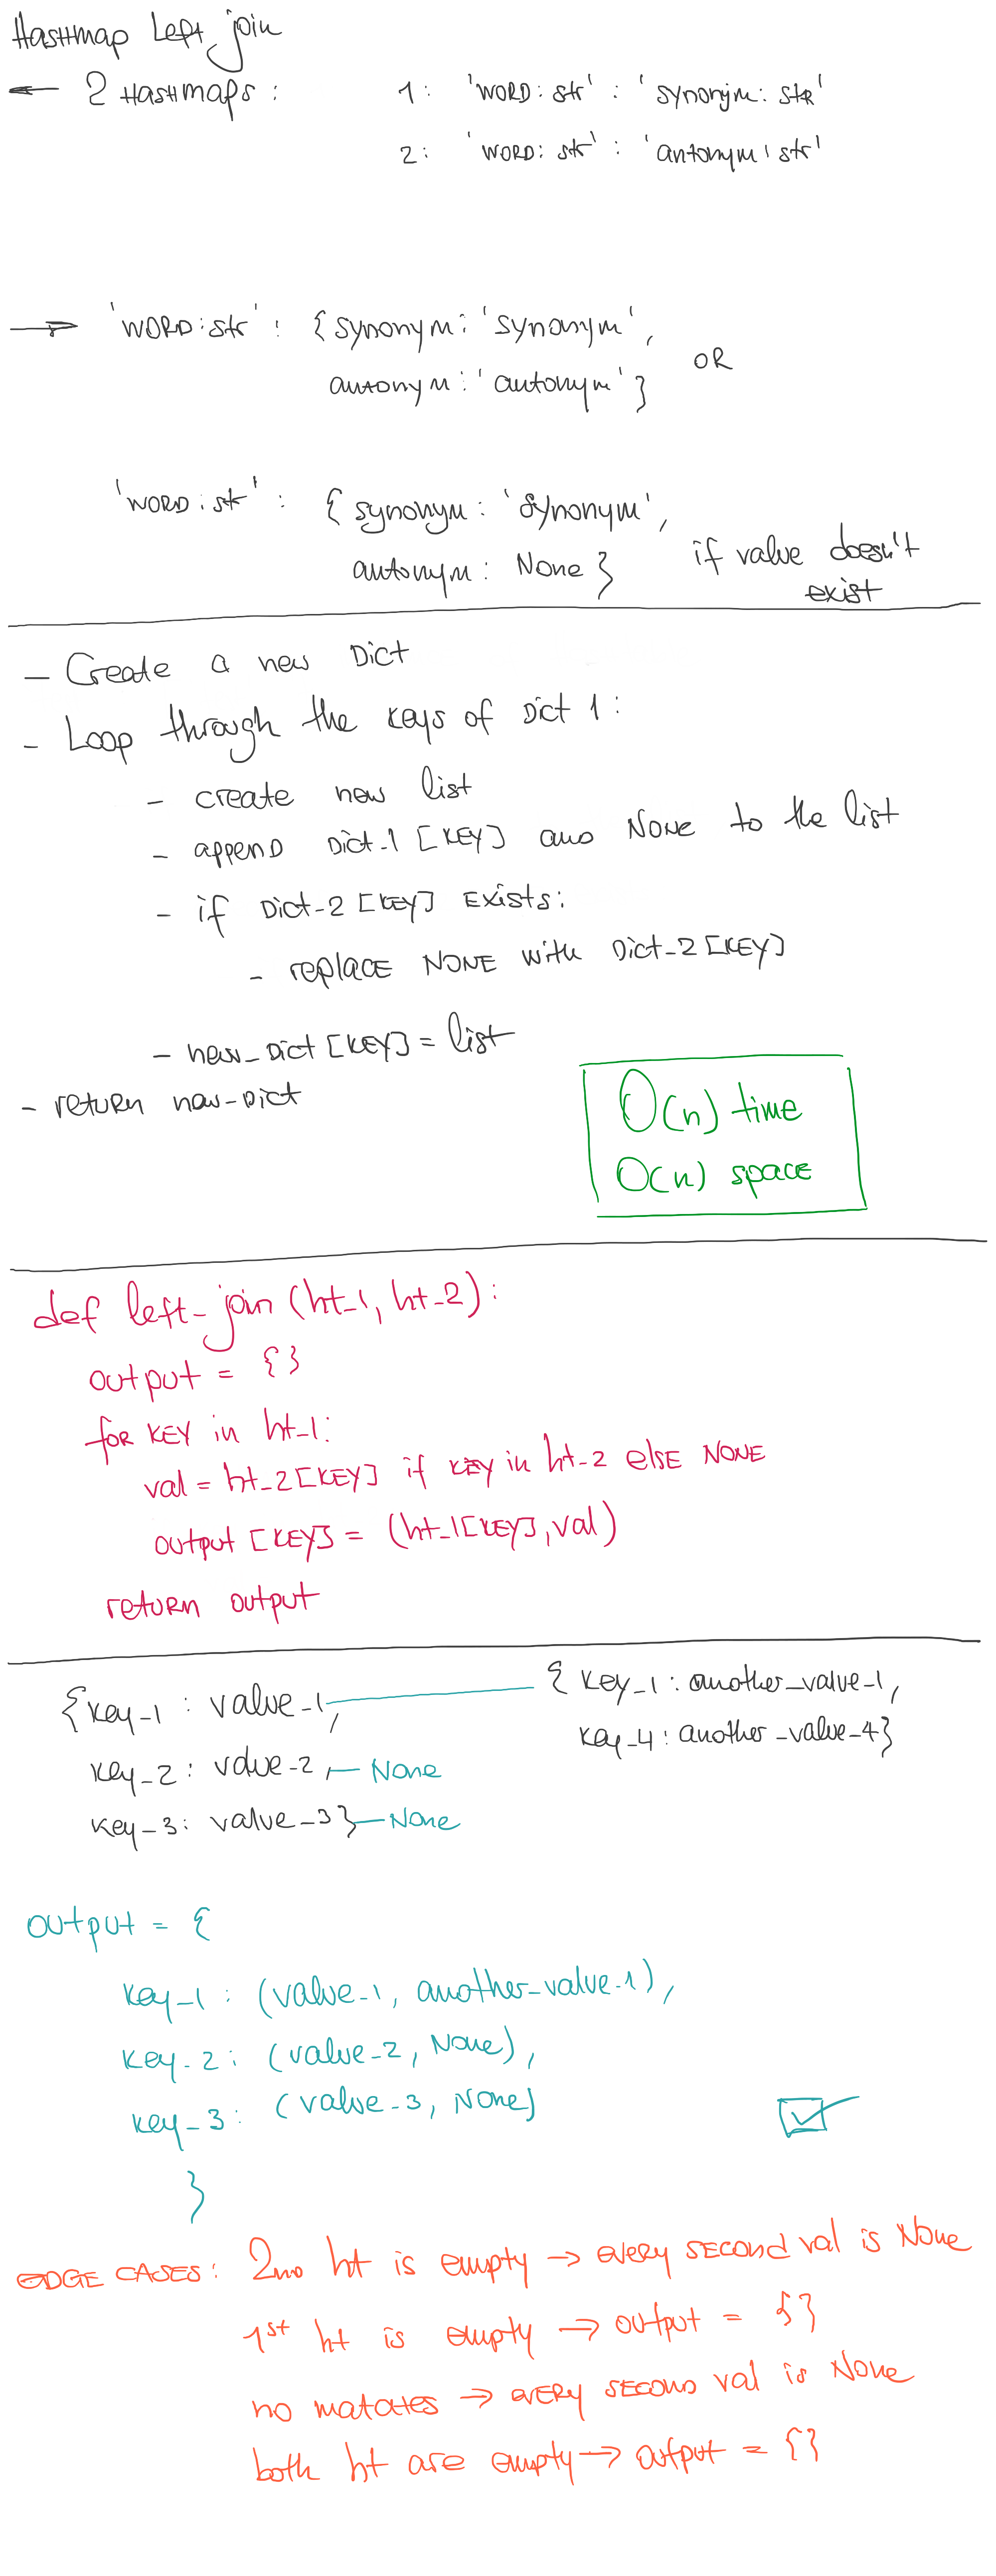 Hashmap Left join
← 2 Hashmaps: 1: 'WORD: str' : 'synonym: str'
2: 'WORD: str' : 'antonym: str'
→ 'WORD: str' : {synonym: 'synonym',
antonym: 'antonym'} OR
'WORD: str' : {synonym: 'synonym',
antonym: None} if value doesn't
exist
- Create a new Dict
- Loop through the keys of Dict 1:
- create new list
- append Dict-1 [KEY] and None to the list
- if Dict-2 [KEY] EXISTS:
- replace NONE with Dict-2[KEY]
- new_Dict [KEY] = list
- return new-Dict
O(n) time
O(n) space
def left_join (ht-1, ht-2):
output = {}
for KEY in ht-1:
val = ht-2[KEY] if KEY in ht-2 else NONE
output [KEY] = (ht-1[KEY], val)
return output
{key_1 : value_1, { key_1 : another_value_1,
key_4 : another_value_4}
key_2 : value_2, — None
key_3 : value_3} — None
output = {
key_1 : (value_1, another_value_1),
key_2 : (value_2, None),
key_3 : (value_3, None)
}
EDGE CASES: 2nd ht is empty → every second val is None
1st ht is empty → output = {}
no matches → every second val is None
both ht are empty → output = {}